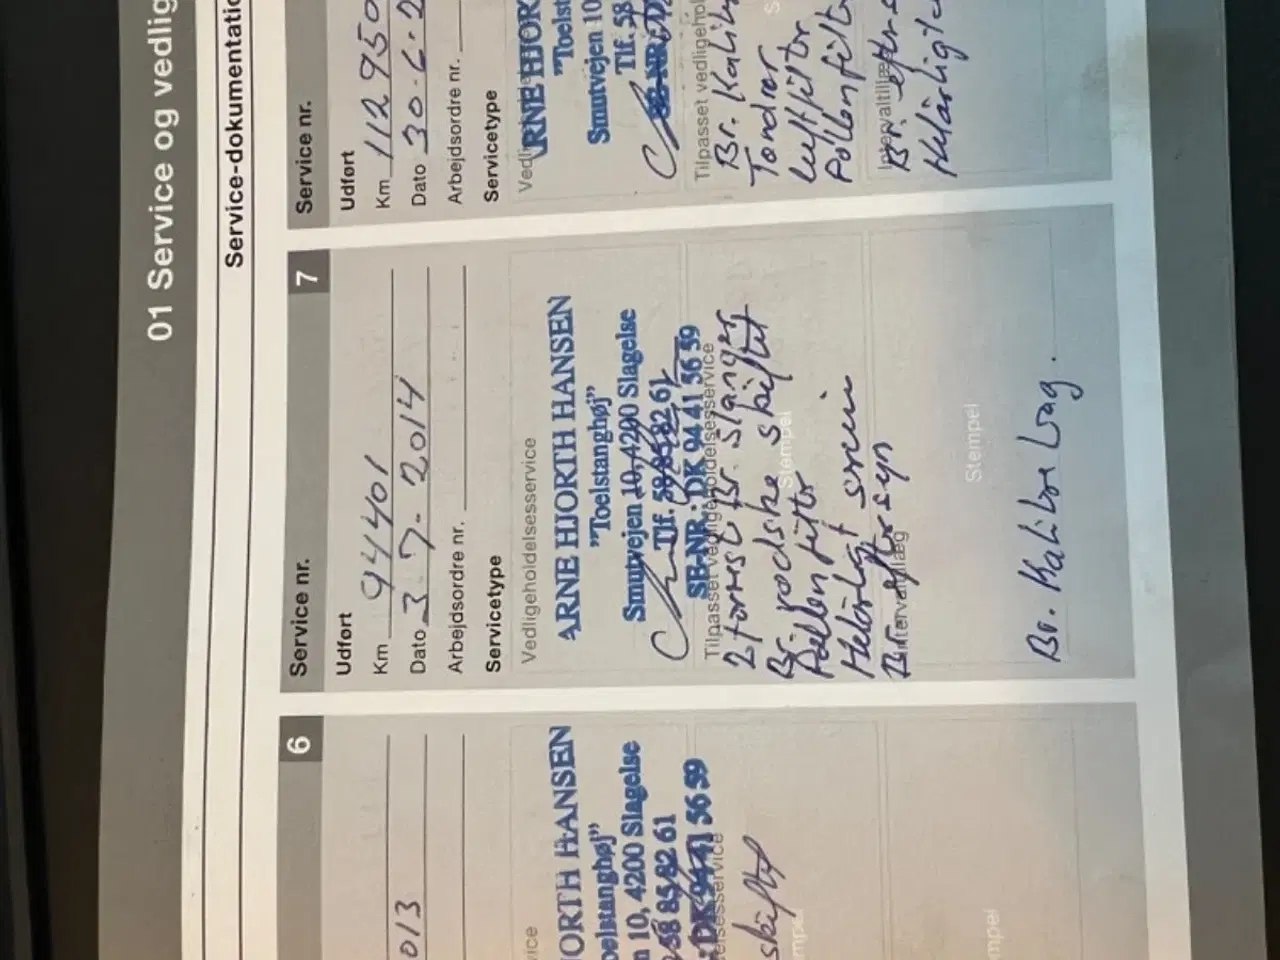 01 Service og vedlig
Service-dokumentatio
Service nr. 6
013
vice
JORTH HANSEN
oelstanghøj"
n 10, 4200 Slagelse
58 85 82 61
: DK 94 41 56 59
elsesservice
skiftet
mpel
mpel
Service nr. 7
Udført
Km 94401
Dato 3-7-2014
Arbejdsordre nr.
Servicetype
Vedligeholdelsesservice
ARNE HJORTH HANSEN
"Toelstanghøj"
Smutvejen 10, 4200 Slagelse
Tlf. 58 85 82 61
SE-NR.: DK 94 41 56 59
Tilpasset vedligeholdelsesservice
2 forreste Br. slanger
Br. vædske skiftet
Stempel
Pollenfilter
Helårligt
Br. eftersyn
Intervaltillæg
Stempel
Br. Kalibre Lag.
Service nr.
Udført
Km 112950
Dato 30-6-2
Arbejdsordre nr.
Servicetype
Vedli
ARNE HJOR
"Toelst
Smutvejen 10
Tlf. 58
SE-NR.: D
Tilpasset vedligehol
Br. Kalib
Tandrem
Luftfilter
Pollenfilte
Intervaltillæg
Br. efters
Helårligt